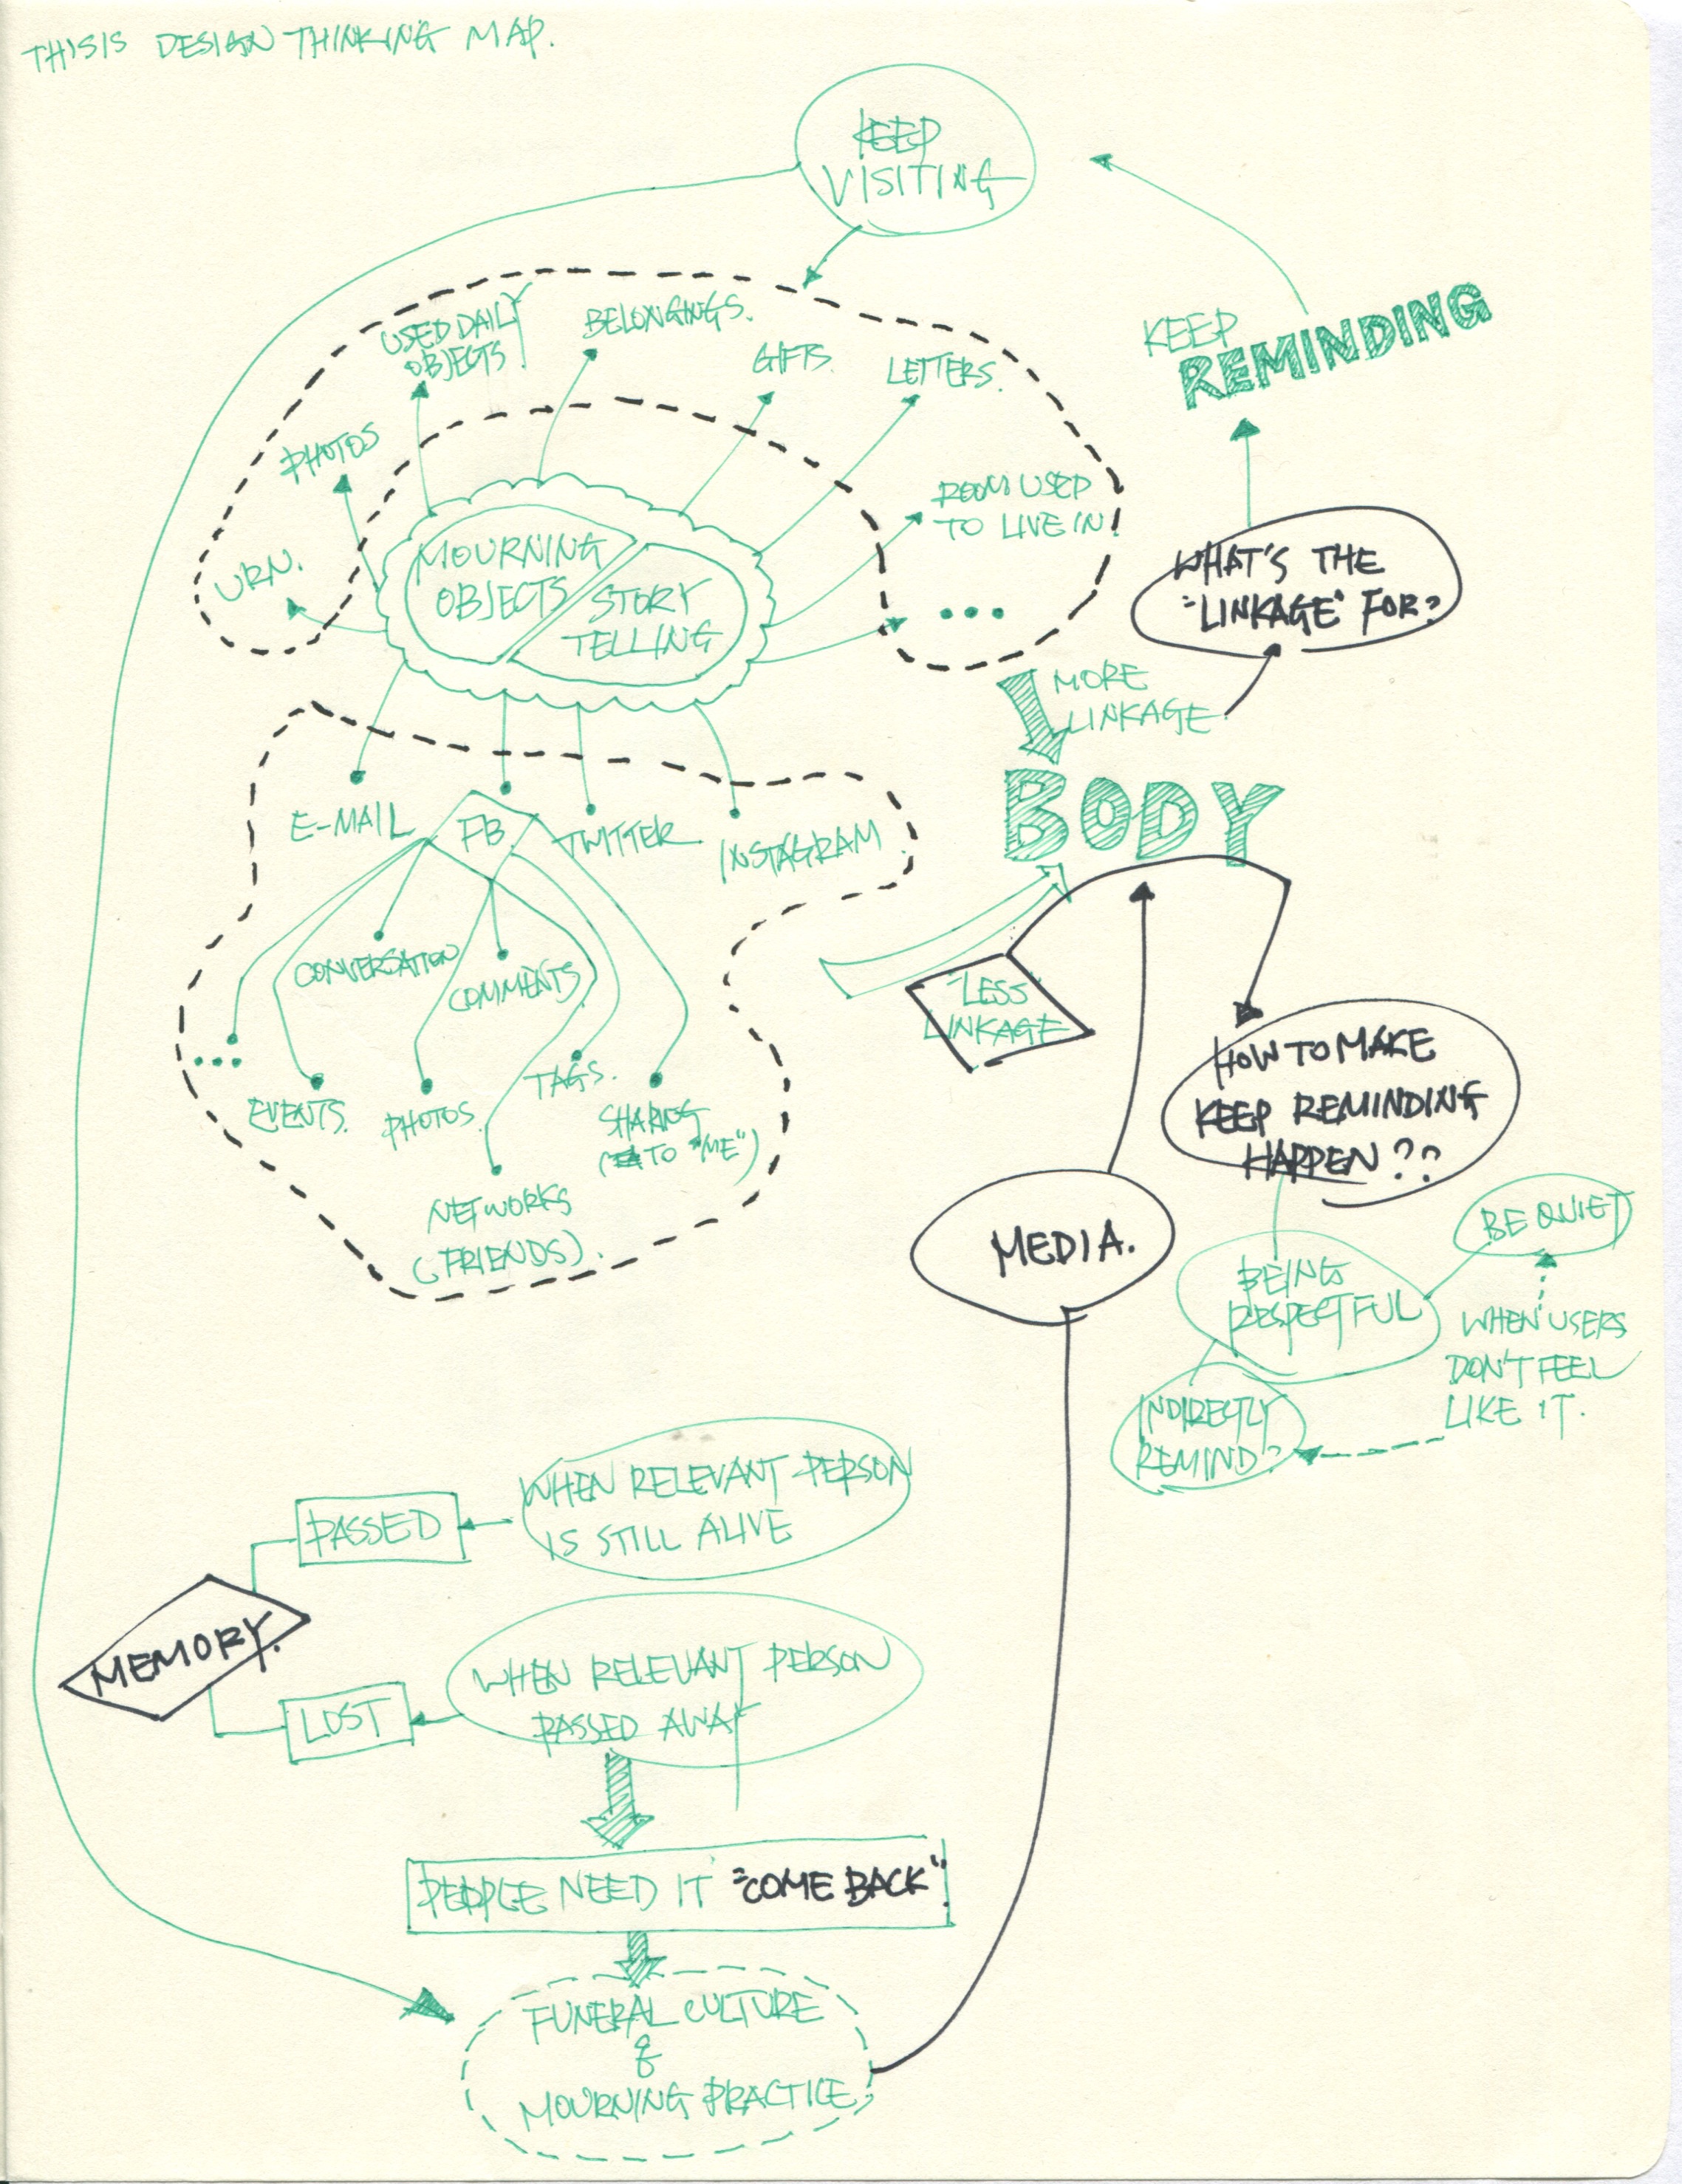 THISIS DESIGN THINKING MAP.
KEEP
VISITING
KEEP
REMINDING
USED DAILY
OBJECTS
BELONGINGS.
GIFTS.
LETTERS.
PHOTOS
URN.
ROOM USED
TO LIVE IN
...
MOURNING
OBJECTS
STORY
TELLING
WHAT'S THE
"LINKAGE" FOR?
MORE
LINKAGE
BODY
E-MAIL
FB.
TWITTER
INSTAGRAM
CONVERSATION
COMMENTS
...
EVENTS.
PHOTOS.
TAGS.
SHARING
(TO "ME")
NETWORKS
(FRIENDS).
"LESS
LINKAGE
HOW TO MAKE
KEEP REMINDING
HAPPEN??
MEDIA.
BEING
RESPECTFUL
BE QUIET
WHEN USERS
DON'T FEEL
LIKE IT.
INDIRECTLY
REMIND?
WHEN RELEVANT PERSON
IS STILL ALIVE
PASSED
MEMORY.
LOST
WHEN RELEVANT PERSON
PASSED AWAY
PEOPLE NEED IT "COME BACK".
FUNERAL CULTURE
&
MOURNING PRACTICE